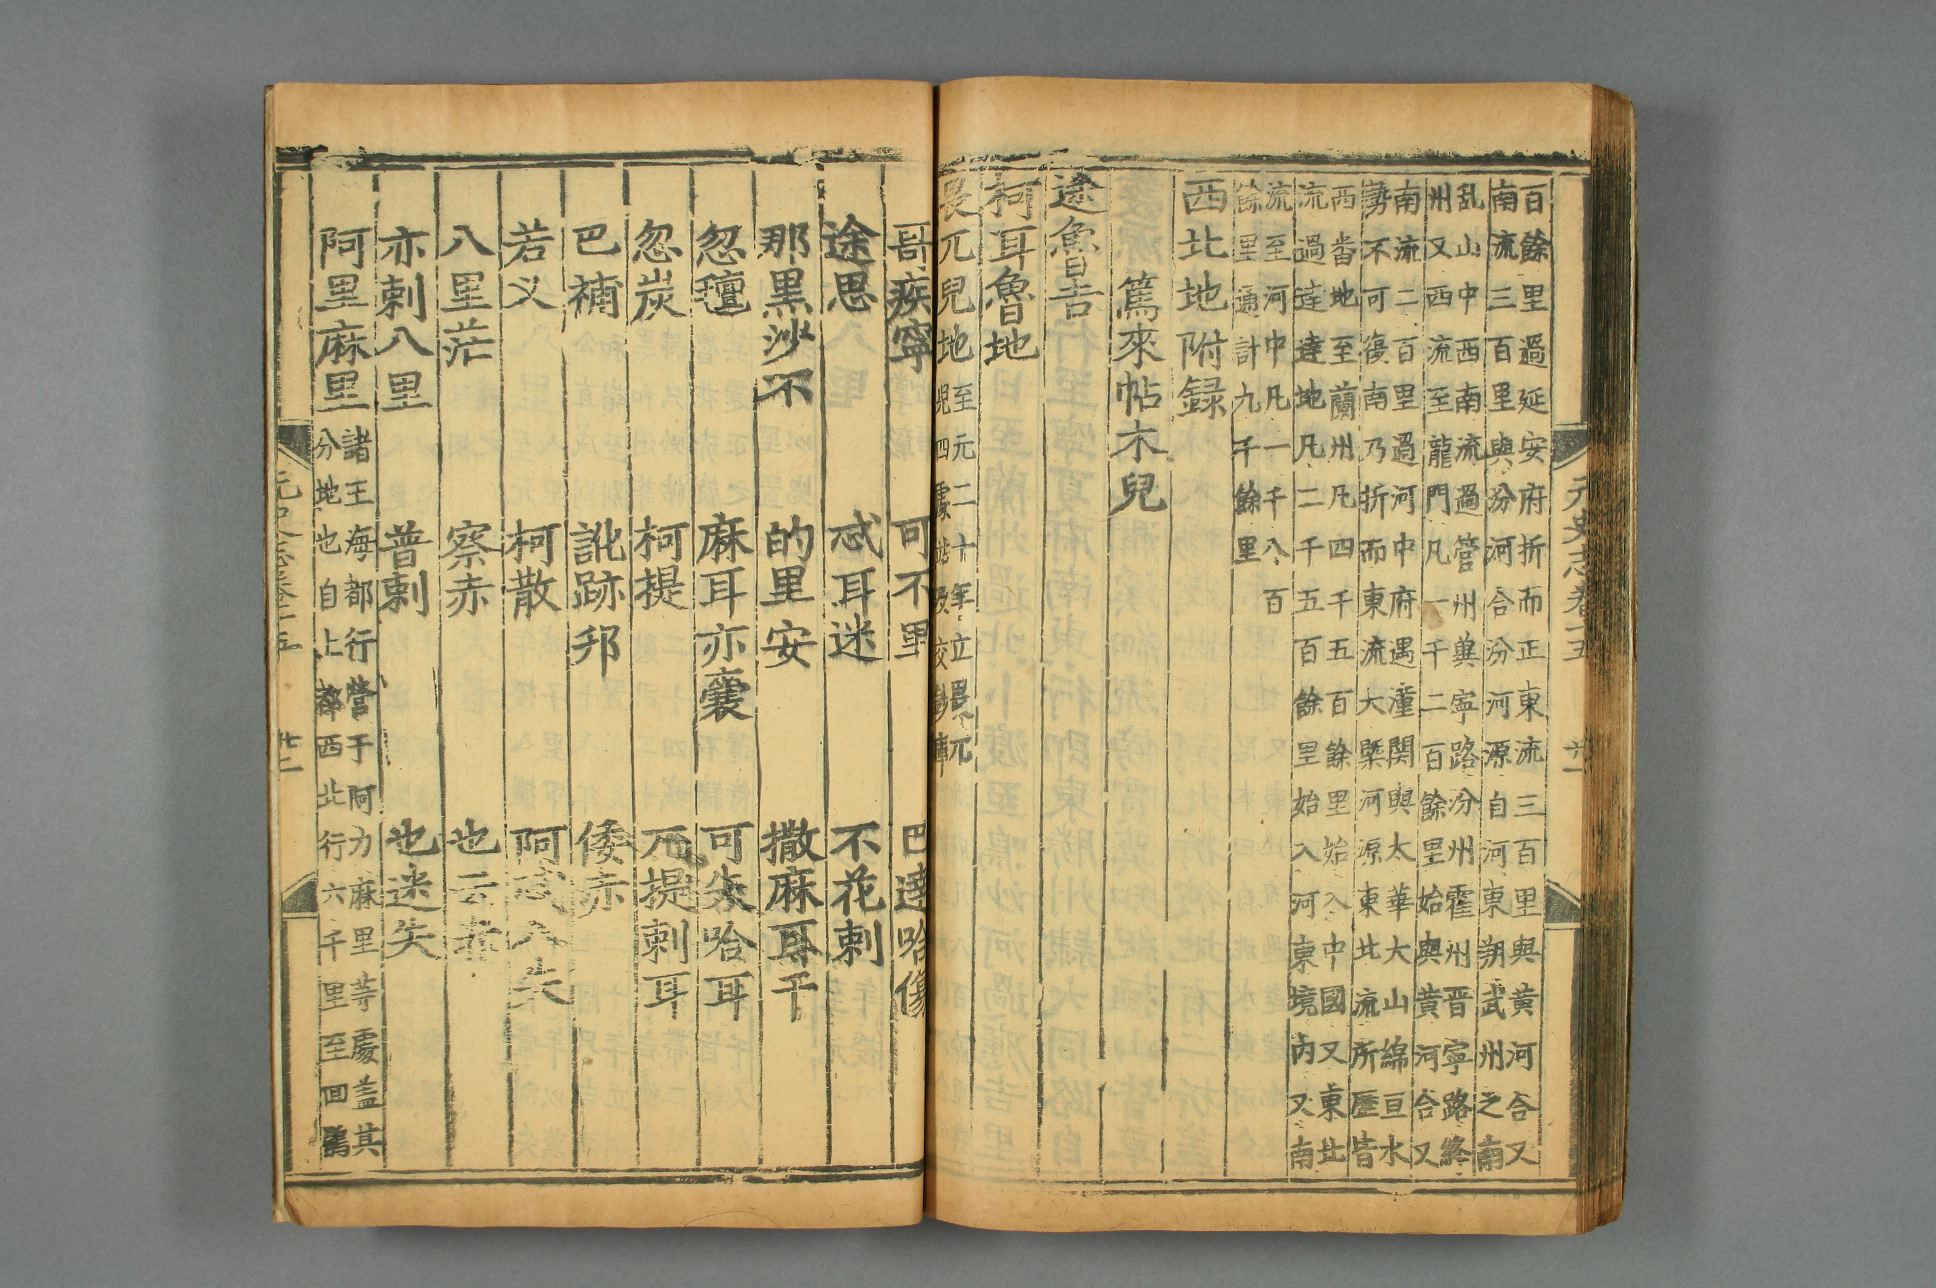 元史志卷十五
百餘里過延安府折而正東流三百里與黃河合又
南流三百里與汾河合汾河源自河東朔武州之南
乱山中西南流過管州冀寧路汾州霍州晋寧路絳
州又西流至龍門凡一千二百餘里始與黄河合又
南流二百里過河中府遇潼関與太華大山綿亘水
勢不可復南乃折而東流大槩河源東北流所歷皆
西畨地至蘭州凡四千五百餘里始入中國又東北
流過達達地凡二千五百餘里始入河東境内又南
流至河中凡一千八百
餘里通計九千餘里
西北地附録
篤來帖木兒
途魯吉
柯耳魯地
畏兀兒地 至元二十年立畏兀
兒四處站及交鈔庫
哥疾寧 可不里 巴達哈傷
途思 忒耳迷 不花剌
那黑沙不 的里安 撒麻耳干
忽氊 麻耳亦囊 可失哈耳
忽炭 柯提 兀提剌耳
巴補 訛跡邦 倭赤
若义 柯散 阿忒八失
八里茫 察赤 也云赤
亦剌八里 普剌 也迷失
阿里麻里 諸王海都行營于阿力麻里等處盖其
分地也自上都西北行六千里至回鶻
元史志卷十五
廿二